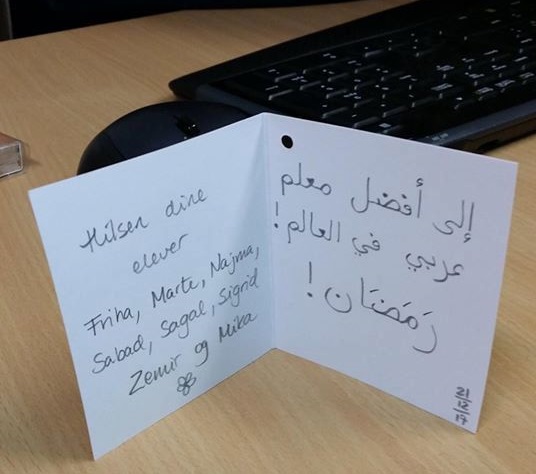 Hilsen dine
elever
Friha, Marte, Najma,
Sabad, Sagal, Sigrid
Zemir og Mika
إلى أفضل معلم
عربي في العالم!
رَمَضَان!
21
12
17